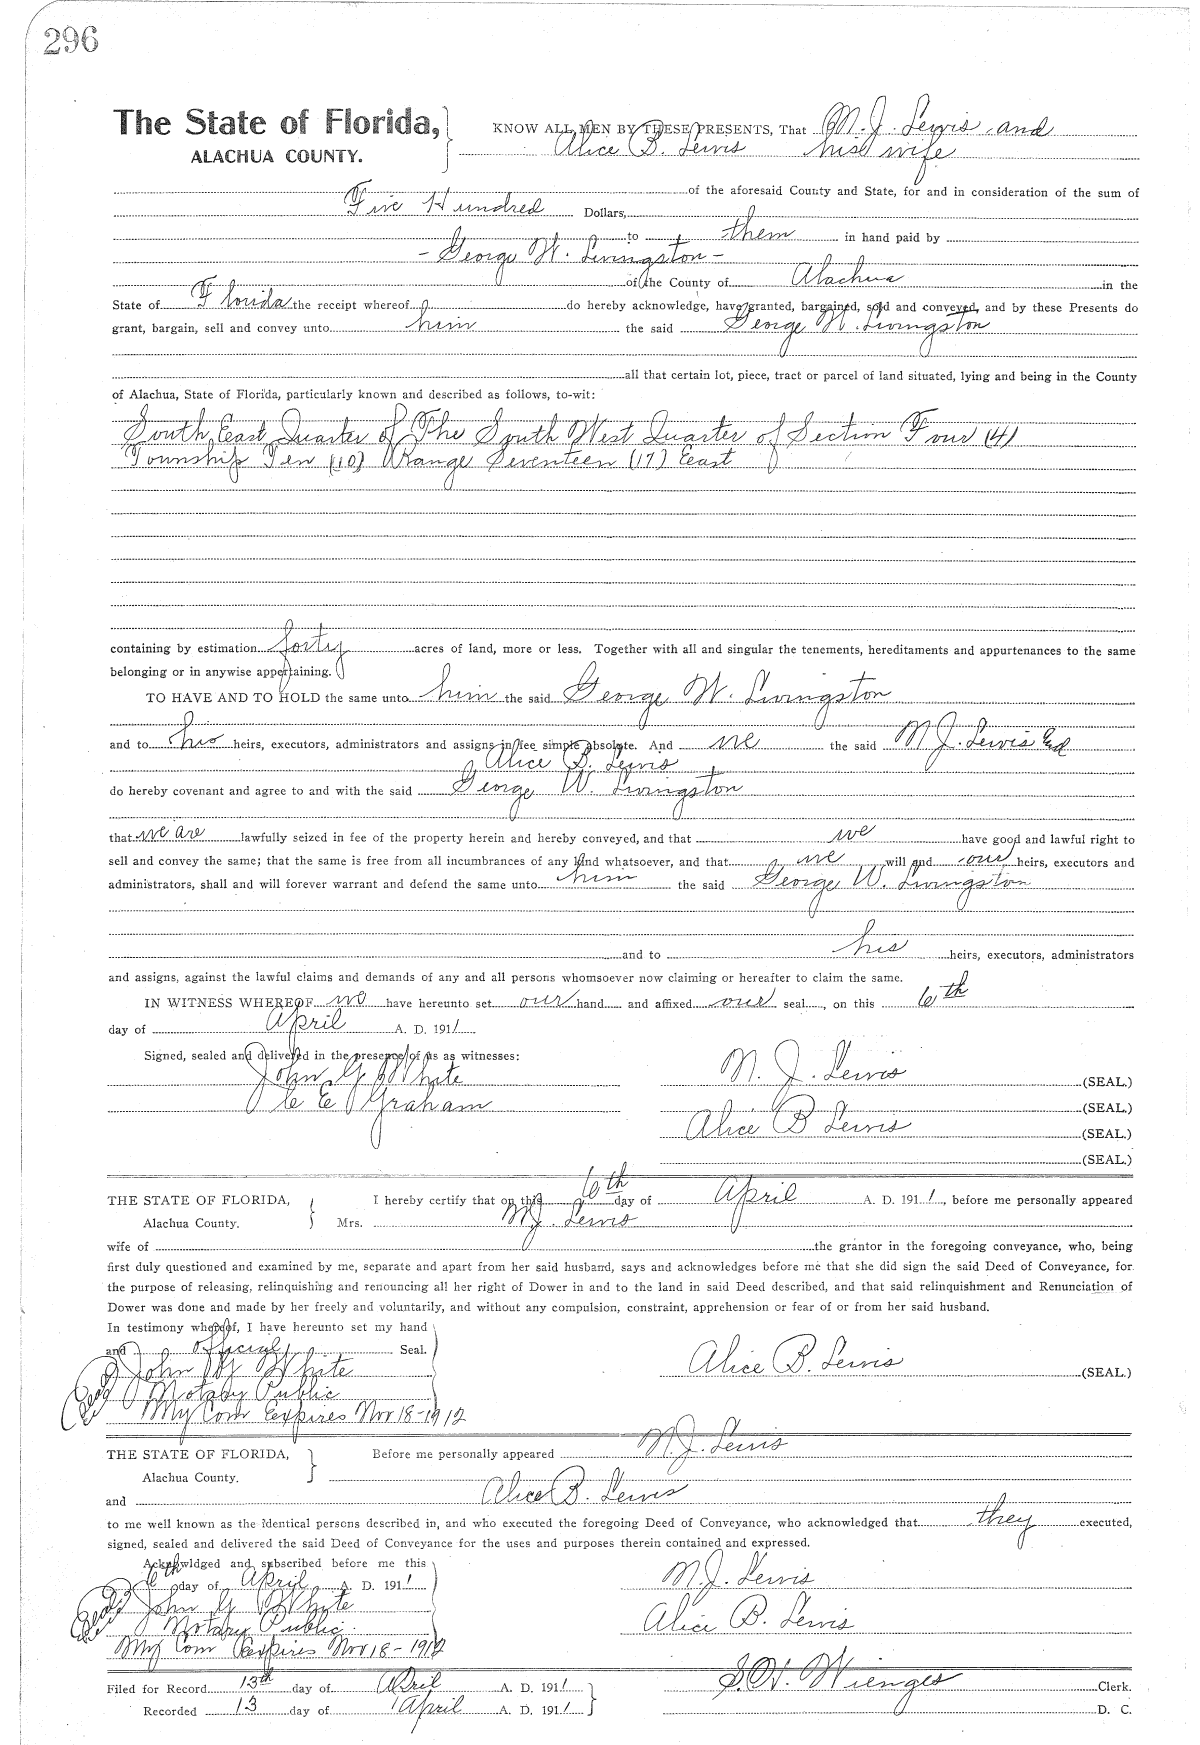 296
The State of Florida, KNOW ALL MEN BY THESE PRESENTS, That M. J. Lewis and
ALACHUA COUNTY. Alice B. Lewis his wife
of the aforesaid County and State, for and in consideration of the sum of
Five Hundred Dollars,
to them in hand paid by
- George W. Livingston -
of the County of Alachua in the
State of Florida the receipt whereof do hereby acknowledge, have granted, bargained, sold and conveyed, and by these Presents do
grant, bargain, sell and convey unto him the said George W. Livingston
all that certain lot, piece, tract or parcel of land situated, lying and being in the County
of Alachua, State of Florida, particularly known and described as follows, to-wit:
South East Quarter of The South West Quarter of Section Four (4)
Township Ten (10) Range Seventeen (17) East
containing by estimation forty acres of land, more or less. Together with all and singular the tenements, hereditaments and appurtenances to the same
belonging or in anywise appertaining.
TO HAVE AND TO HOLD the same unto him the said George W. Livingston
and to his heirs, executors, administrators and assigns in fee simple absolute. And we the said M J. Lewis
Alice B. Lewis
do hereby covenant and agree to and with the said George W. Livingston
that we are lawfully seized in fee of the property herein and hereby conveyed, and that we have good and lawful right to
sell and convey the same; that the same is free from all incumbrances of any kind whatsoever, and that we will and our heirs, executors and
administrators, shall and will forever warrant and defend the same unto him the said George W. Livingston
and to his heirs, executors, administrators
and assigns, against the lawful claims and demands of any and all persons whomsoever now claiming or hereafter to claim the same.
IN WITNESS WHEREOF we have hereunto set our hand and affixed our seal, on this 6th
day of April A. D. 1911
Signed, sealed and delivered in the presence of us as witnesses:
John G White M. J. Lewis (SEAL.)
C E Graham (SEAL.)
Alice B Lewis (SEAL.)
(SEAL.)
THE STATE OF FLORIDA, I hereby certify that on this 6th day of April A. D. 1911, before me personally appeared
Alachua County. Mrs. M J. Lewis
wife of the grantor in the foregoing conveyance, who, being
first duly questioned and examined by me, separate and apart from her said husband, says and acknowledges before me that she did sign the said Deed of Conveyance, for
the purpose of releasing, relinquishing and renouncing all her right of Dower in and to the land in said Deed described, and that said relinquishment and Renunciation of
Dower was done and made by her freely and voluntarily, and without any compulsion, constraint, apprehension or fear of or from her said husband.
In testimony whereof, I have hereunto set my hand
and official Seal.
John G White Alice B. Lewis (SEAL.)
(Seal) Notary Public
My Com Expires Nov 18-1912
THE STATE OF FLORIDA, Before me personally appeared M. J. Lewis
Alachua County.
and Alice B. Lewis
to me well known as the identical persons described in, and who executed the foregoing Deed of Conveyance, who acknowledged that they executed,
signed, sealed and delivered the said Deed of Conveyance for the uses and purposes therein contained and expressed.
Ackowldged and subscribed before me this
6th day of April A. D. 1911 M. J. Lewis
(Seal) John G White
Notary Public Alice B. Lewis
My Com Expires Nov 18-1912
Filed for Record 13th day of April A. D. 1911 S. H. Wienges Clerk.
Recorded 13 day of April A. D. 1911 D. C.